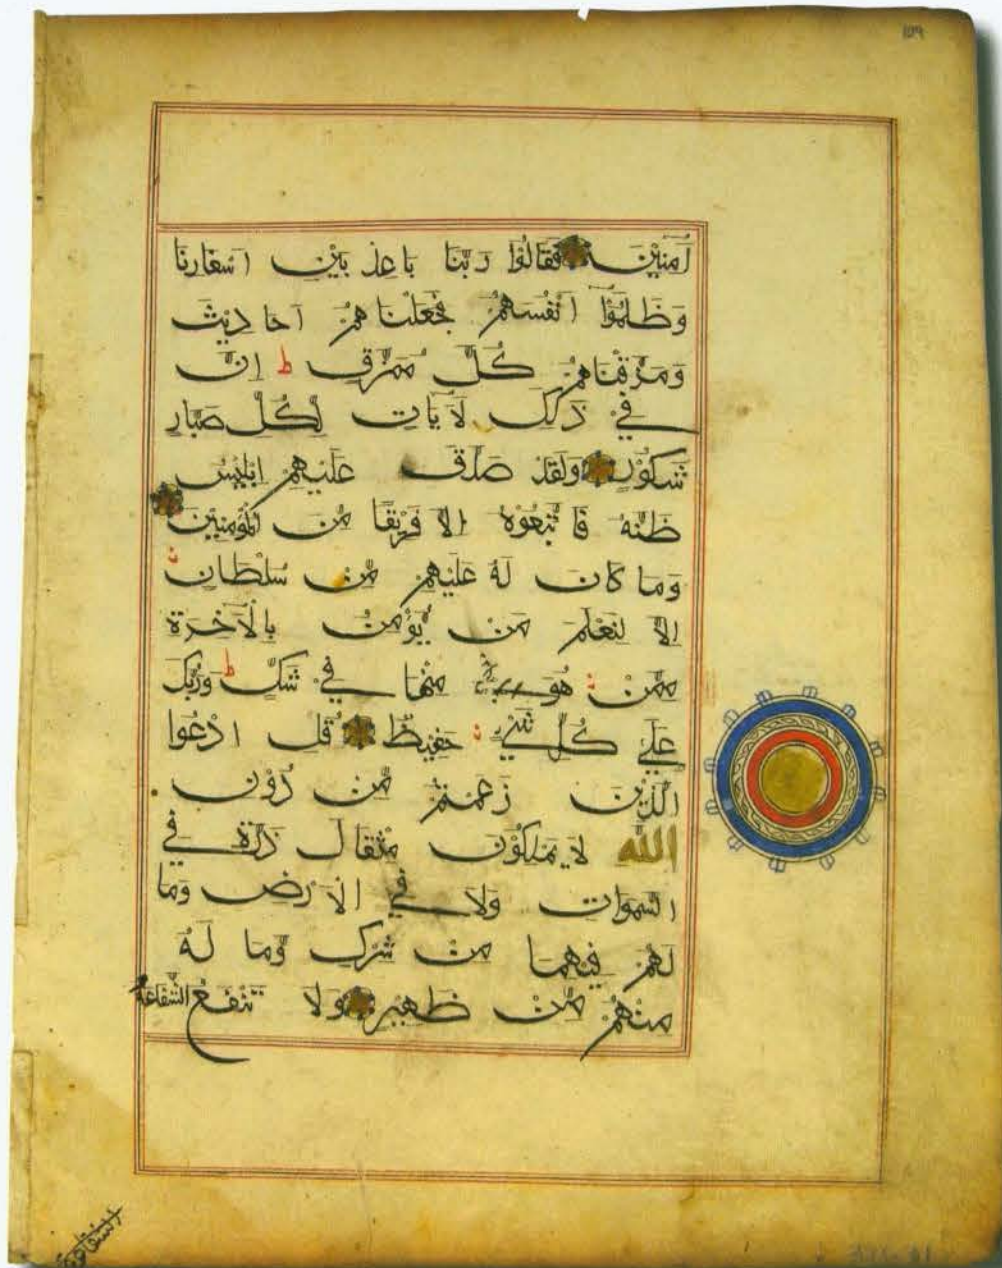 آمِنِيْنَ فَقَالُوْا رَبَّنَا بَاعِدْ بَيْنَ اَسْفَارِنَا
وَظَلَمُوْٓا اَنْفُسَهُمْ فَجَعَلْنَاهُمْ اَحَادِيْثَ
وَمَزَّقْنَاهُمْ كُلَّ مُمَزَّقٍ ط اِنَّ
فِيْ ذٰلِكَ لَاٰيَاتٍ لِّكُلِّ صَبَّارٍ
شَكُوْرٍ وَلَقَدْ صَدَّقَ عَلَيْهِمْ اِبْلِيْسُ
ظَنَّهُ فَاتَّبَعُوْهُ اِلَّا فَرِيْقًا مِّنَ الْمُؤْمِنِيْنَ
وَمَا كَانَ لَهُ عَلَيْهِمْ مِّنْ سُلْطَانٍ
اِلَّا لِنَعْلَمَ مَنْ يُّؤْمِنُ بِالْاٰخِرَةِ
مِمَّنْ هُوَ مِنْهَا فِيْ شَكٍّ ط وَرَبُّكَ
عَلٰي كُلِّ شَيْءٍ حَفِيْظٌ قُلِ ادْعُوا
الَّذِيْنَ زَعَمْتُمْ مِّنْ دُوْنِ
اللّٰه لَا يَمْلِكُوْنَ مِثْقَالَ ذَرَّةٍ فِي
السَّمٰوَاتِ وَلَا فِي الْاَرْضِ وَمَا
لَهُمْ فِيْهِمَا مِنْ شِرْكٍ وَّمَا لَهُ
مِنْهُمْ مِّنْ ظَهِيْرٍ وَلَا تَنْفَعُ الشَّفَاعَةُ
الشفاعة